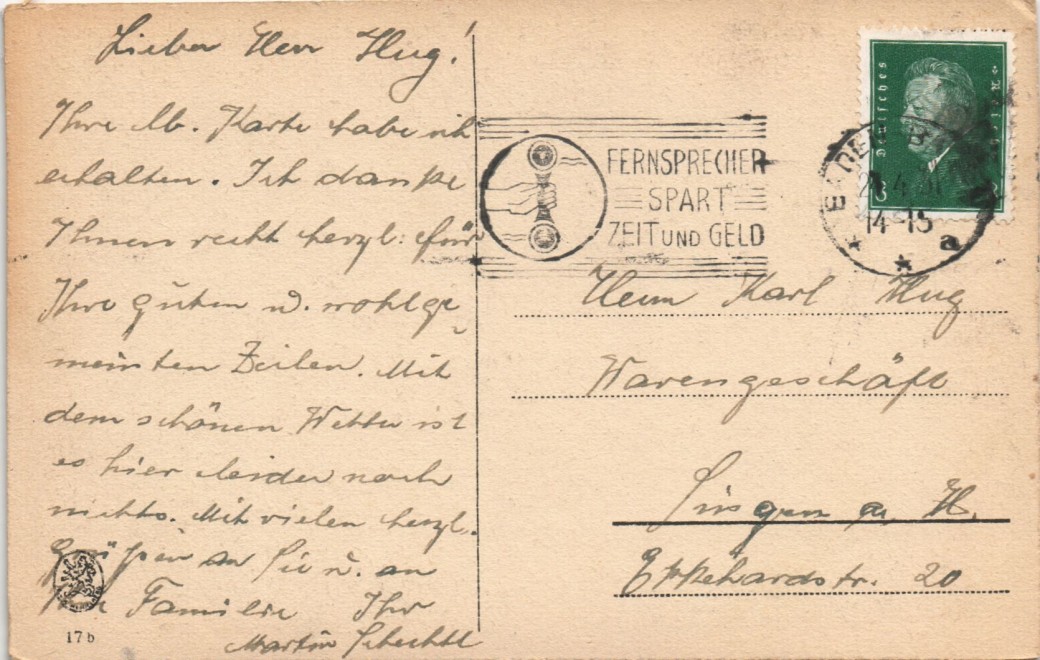 Lieber Herr Hug!
Ihre lb. Karte habe ich
erhalten. Ich danke
Ihnen recht herzl. für
Ihre guten u. wohlge-
meinten Zeilen. Mit
dem schönen Wetter ist
es hier leider noch
nichts. Mit vielen herzl.
Grüßen an Sie u. an
Ihre Familie Ihr
Martin
17b
FERNSPRECHER
SPART
ZEIT UND GELD
Deutsches Reich
8
14-15
a
Herrn Karl Hug
Warengeschäft
Singen a. H.
Ekkehardstr. 20